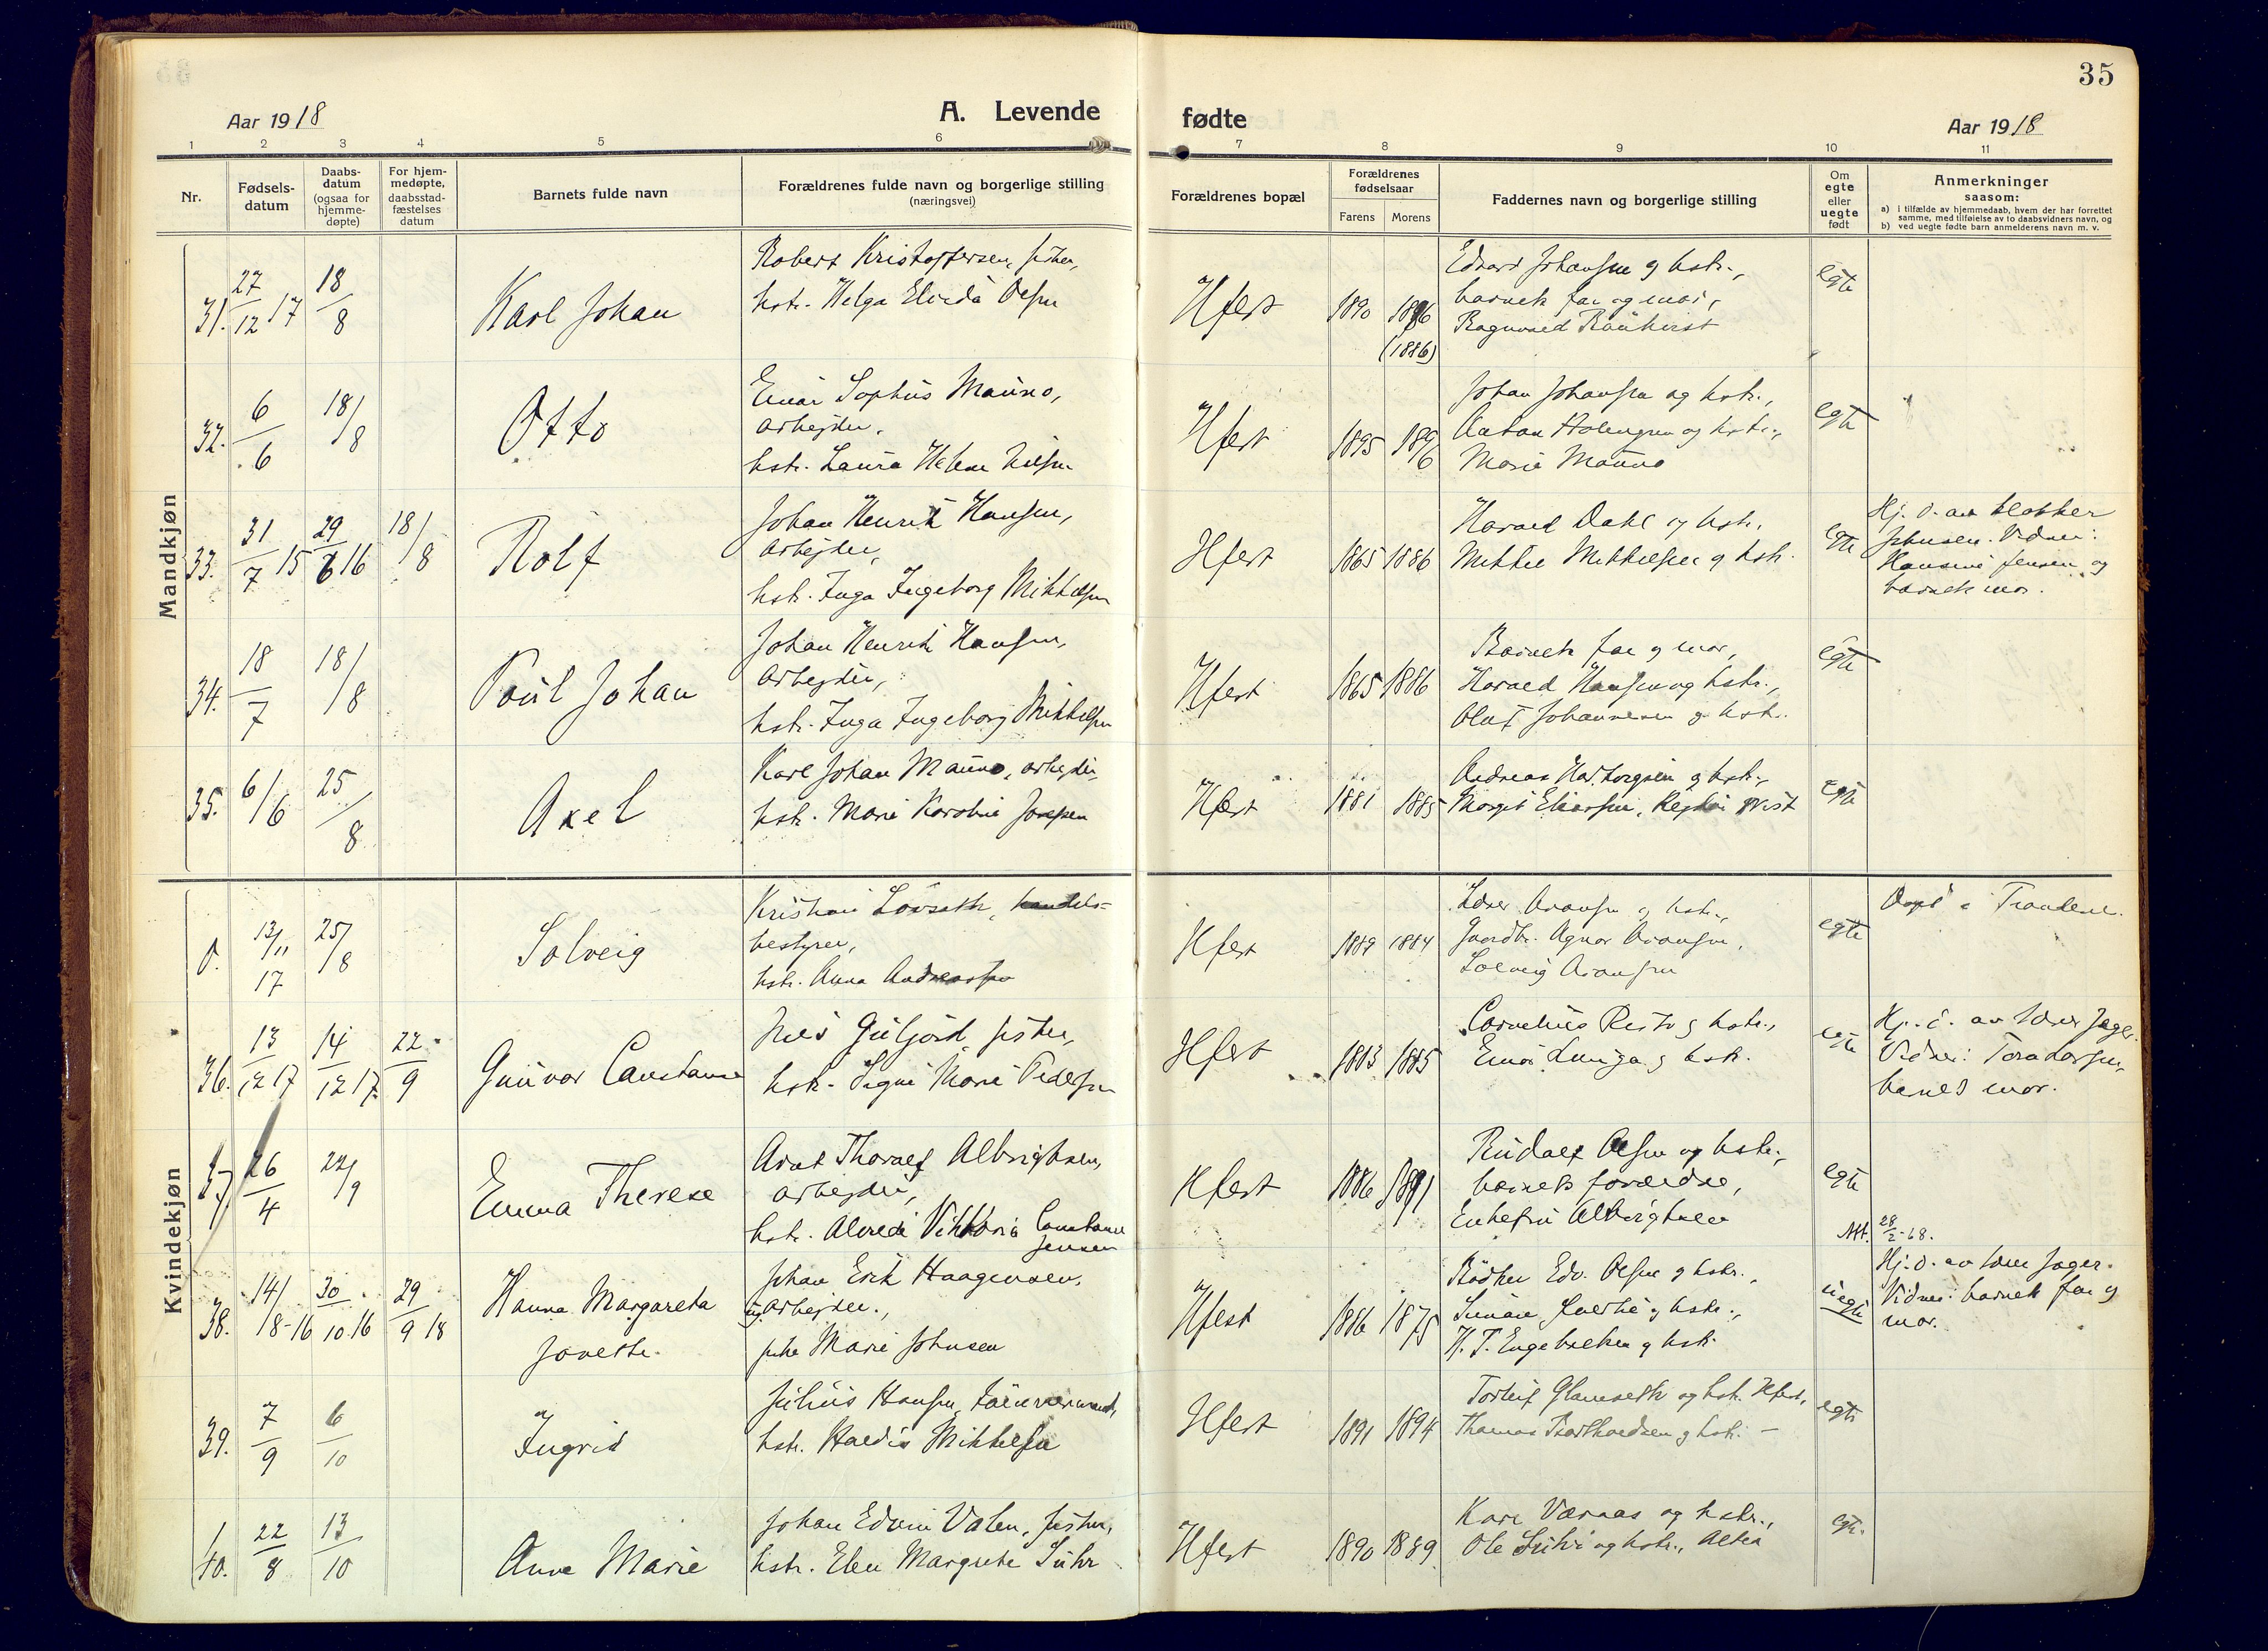 35
Aar 1918
A. Levende
fødte
Aar 1918
1 2 3 4 5 6 7 8 9 10 11
Nr.
Fødsels-
datum
Daabs-
datum
(ogsaa for
hjemme-
døpte)
For hjem-
medøpte,
daabsstad-
fæstelses
datum
Barnets fulde navn
Forældrenes fulde navn og borgerlige stilling
(næringsvei)
Forældrenes bopæl
Forældrenes
fødselsaar
Farens Morens
Faddernes navn og borgerlige stilling
Om
egte
eller
uegte
født
Anmerkninger
saasom:
a) i tilfælde av hjemmedaab, hvem der har forrettet
samme, med tilføielse av to daabsvidners navn, og
b) ved uegte fødte barn anmelderens navn m. v.
Mandkjøn
31. 27/12 17 18/8
Karl Johan
Robert Kristoffersen, fisker,
hstr. Helga Elvida Olsen
Hfest 1890 1886
(1886)
Edvard Johansen og hstr.,
barnets far og mor,
egte
32. 6/6 18/8
Otto
Einar Sophus Mauno,
arbejder,
hstr. Laura Helene Nilsen
Hfest 1895 1896
Johan Johansen og hstr.,
Anton Holmgren og hstr.,
Marie Mauno
egte
33. 31/7 15 29/6 16 18/8
Rolf
Johan Henrik Hansen,
arbejder,
hstr. Inga Ingeborg Mikkelsen
Hfest 1865 1886
Harald Dahl og hstr.
Mikkel Mikkelsen og hstr.
egte
Hj. d. av klokker
Johnsen. Vidner:
Hansine Jensen og
barnets mor.
34. 18/7 18/8
Paul Johan
Johan Henrik Hansen,
arbejder,
hstr. Inga Ingeborg Mikkelsen
Hfest 1865 1886
Barnets far og mor,
Harald Hansen og hstr.,
Olaf Johannesen og hstr.
egte
35. 6/6 25/8
Axel
Karl Johan Mauno, arbejder,
hstr. Marie Karoline
Hfest 1881 1885
Andreas og hstr.,
Margit Eliassen,
egte
Kvindekjøn
0. 13/11 17 25/8
Solveig
Kristian Løvseth, handels-
bestyrer,
hstr. Anna Andreassen
Hfest 1889 1884
Lærer og hstr.,
Agnar
Solveig
egte
Døpt i Trondenes.
36. 13/12 17 14/12 17 22/9
Gunvor Constanse
Nils Guljord, fisker,
hstr. Signe Marie Pedersen
Hfest 1883 1885
Cornelius Risto og hstr.,
Einar og hstr.
egte
Hj. d. av lærer Jager.
Vidner: Tora Larsen,
barnets mor.
37. 26/4 22/9
Emma Therese
Arnt Thoralf Albrigtsen,
arbejder,
hstr. Alvide Viktoria Constanse
Jensen
Hfest 1886 1891
Rudolf Olsen og hstr.,
barnets forældre,
Enkefru Albrigtsen
egte
Att. 28/2-68.
38. 14/1 8-16 30/10 16 29/9 18
Hanna Margareta
Jonette.
Johan Erik Haagensen,
ug. arbejder,
pike Marie Johnsen
Hfest 1886 1875
Bødker Edv. Olsen og hstr.,
og hstr.,
H. T. Engebretsen og hstr.
uegte
Hj. d. av lærer Jager.
Vidner: barnets far og
mor.
39. 7/9 6/10
Ingrid
Julius Hansen, tømmermand,
hstr. Haldis Mikkelsen
Hfest 1891 1894
Torleif Glamseth og hstr. Hfest,
Thomas og hstr. —
egte
40. 22/8 13/10
Anne Marie
Johan Edvin Valen, fisker,
hstr. Elen Margrete Suhr
Hfest 1890 1889
Kare Værnas og hstr.,
Ole Suhr og hstr., Alta
egte.